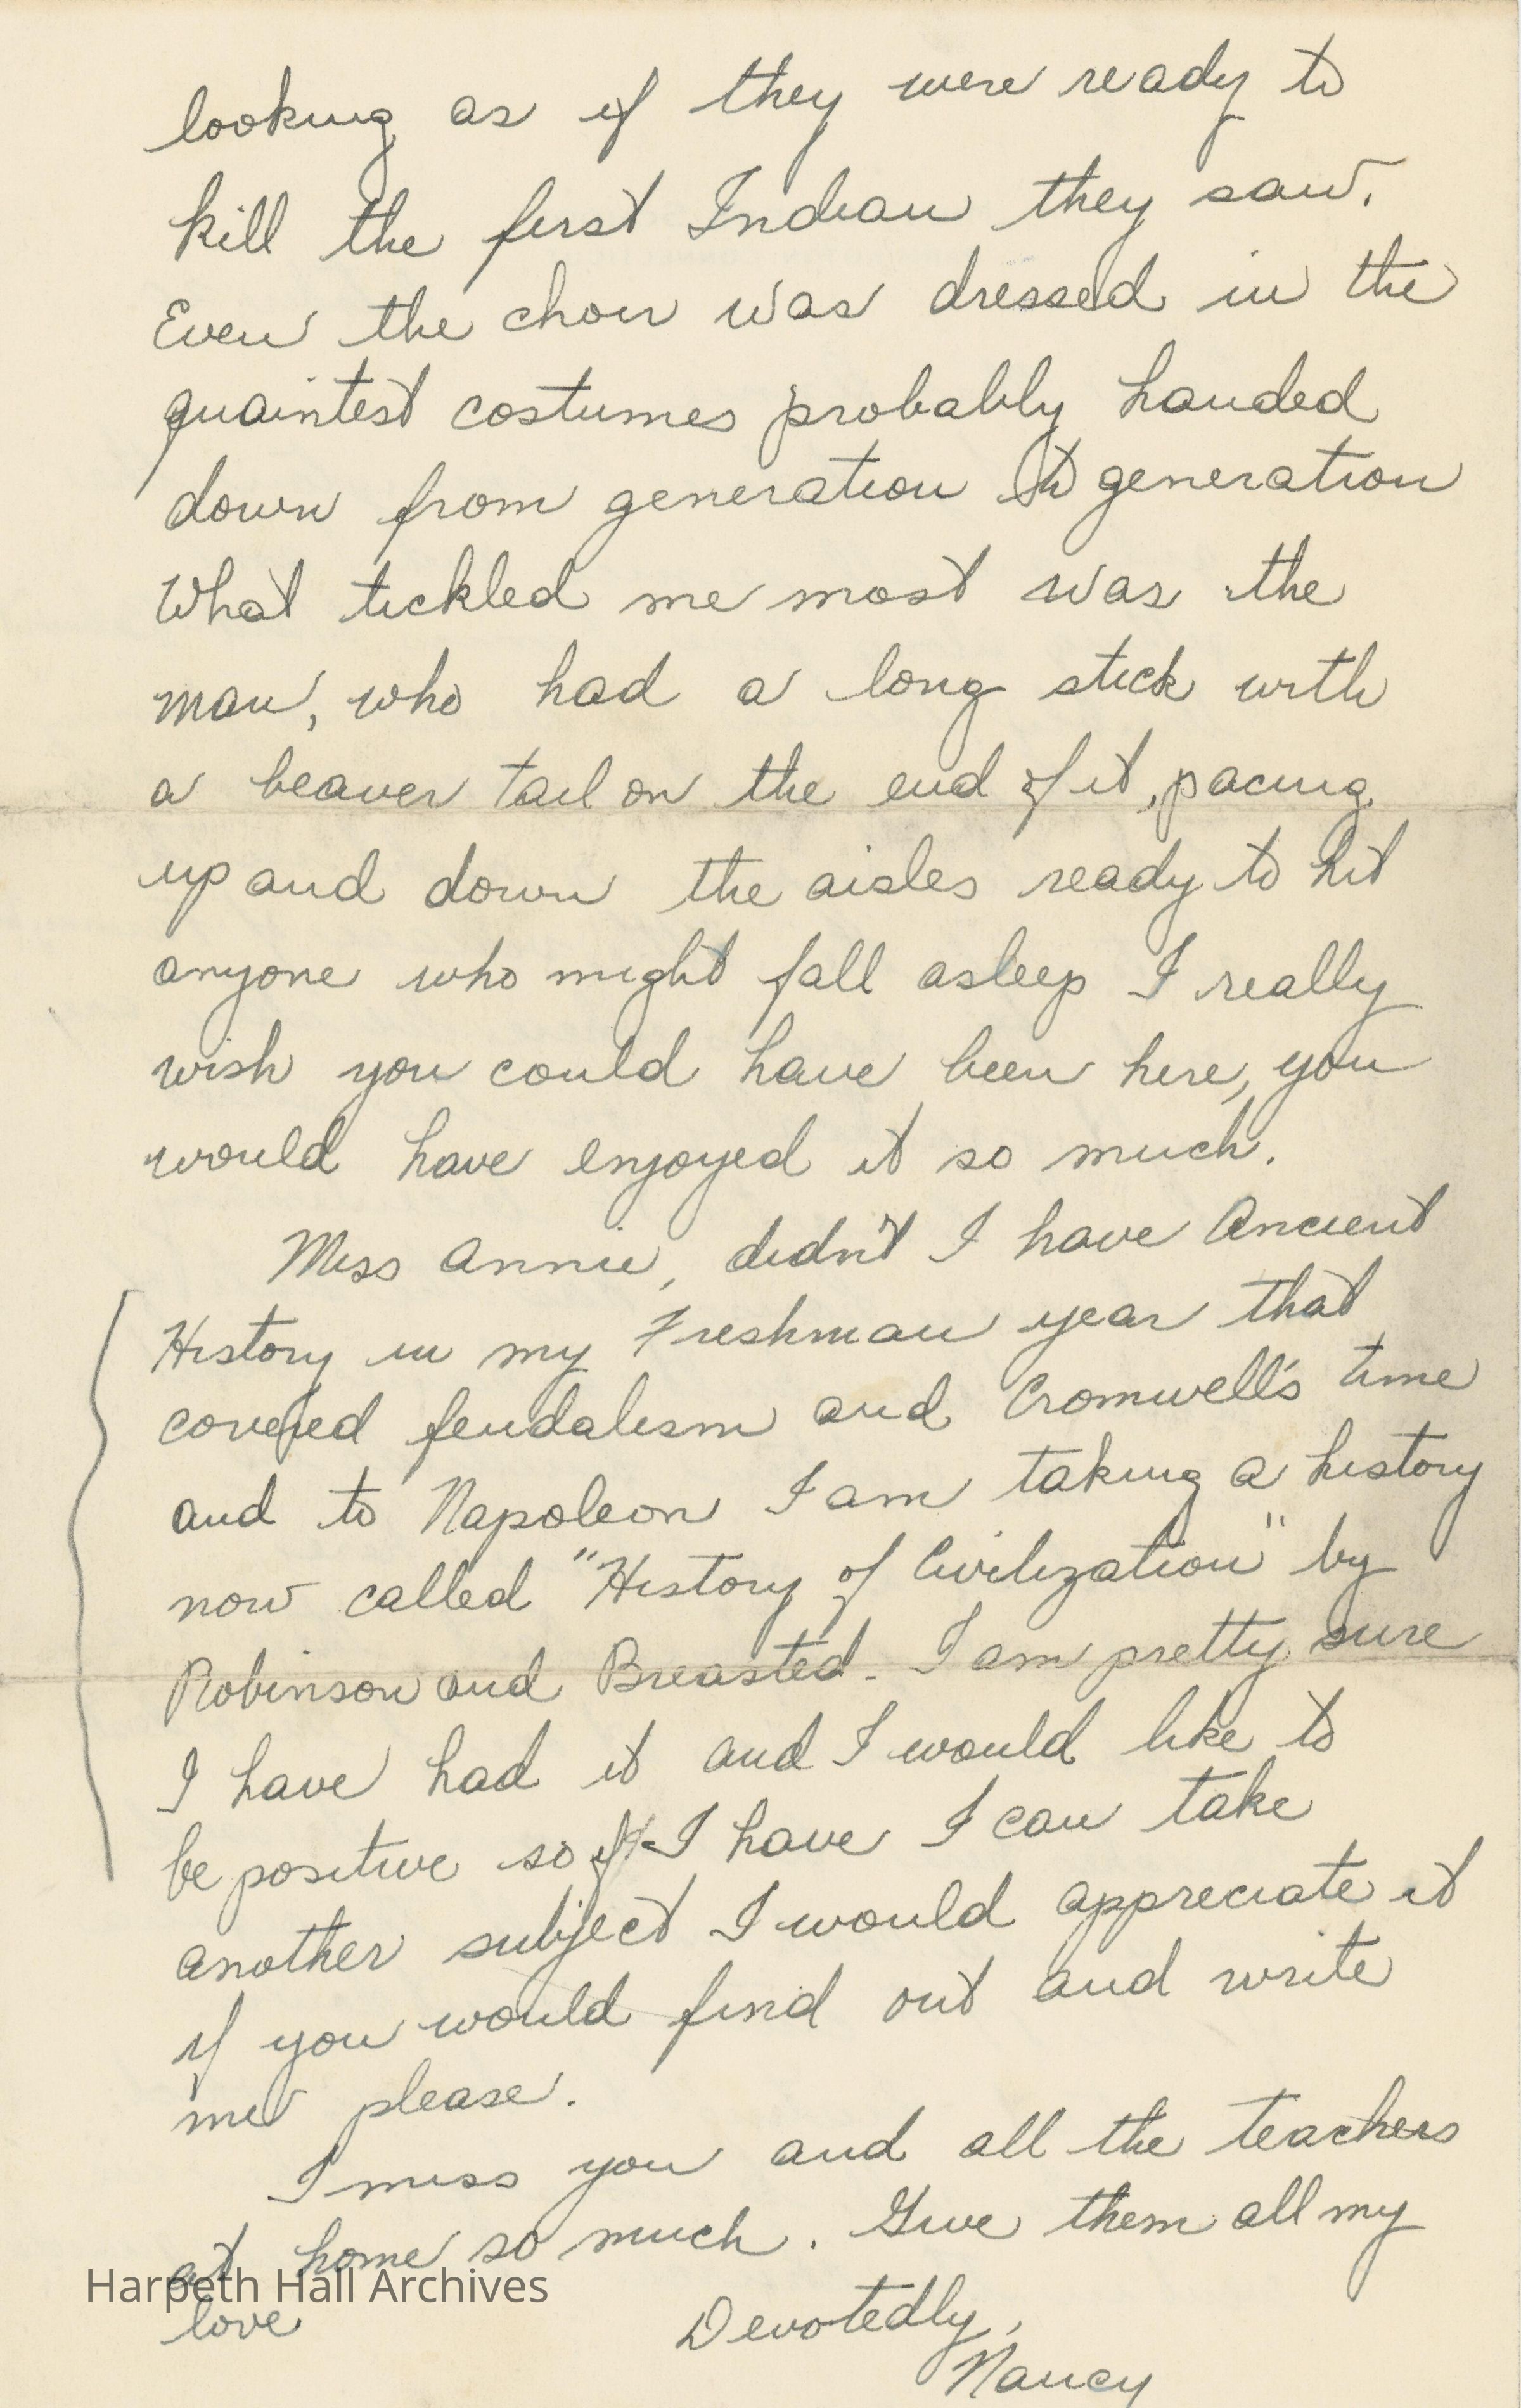 looking as if they were ready to
kill the first Indian they saw.
Even the choir was dressed in the
quaintest costumes probably handed
down from generation to generation
What tickled me most was the
man, who had a long stick with
a beaver tail on the end of it, pacing
up and down the aisles ready to hit
anyone who might fall asleep I really
wish you could have been here, you
would have enjoyed it so much.
Miss Annie, didn't I have Ancient
History in my Freshman year that
covered feudalism and Cromwell's time
and to Napoleon I am taking a history
now called "History of Civilization" by
Robinson and Breasted. I am pretty sure
I have had it and I would like to
be positive so if I have I can take
another subject I would appreciate it
if you would find out and write
me please.
I miss you and all the teachers
at home so much. Give them all my
love
Devotedly,
Nancy
Harpeth Hall Archives